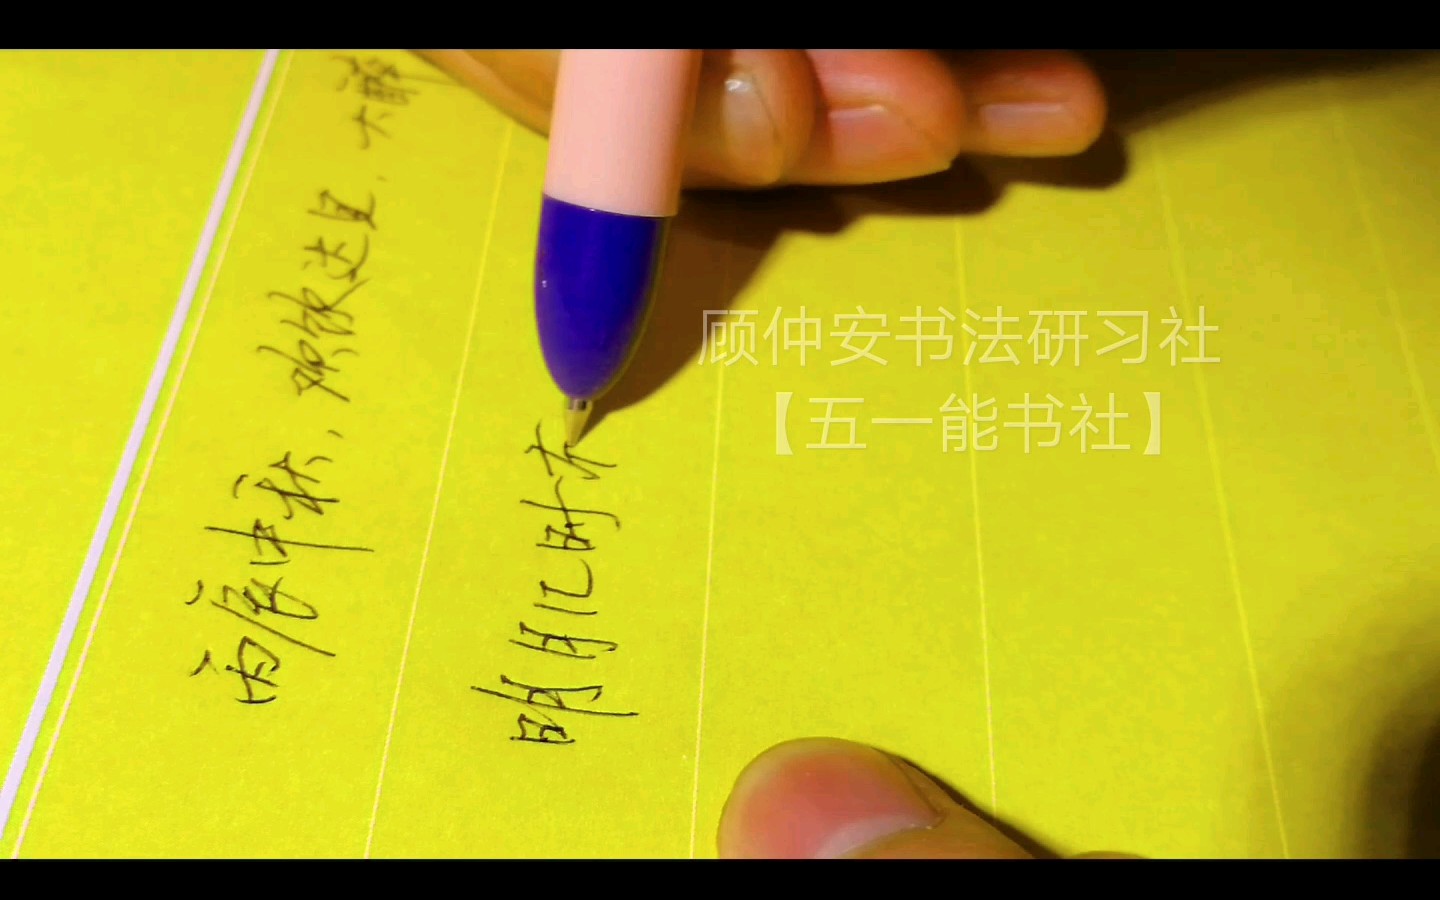 丙辰中秋，欢饮达旦，大醉
明月几时有
顾仲安书法研习社
【五一能书社】